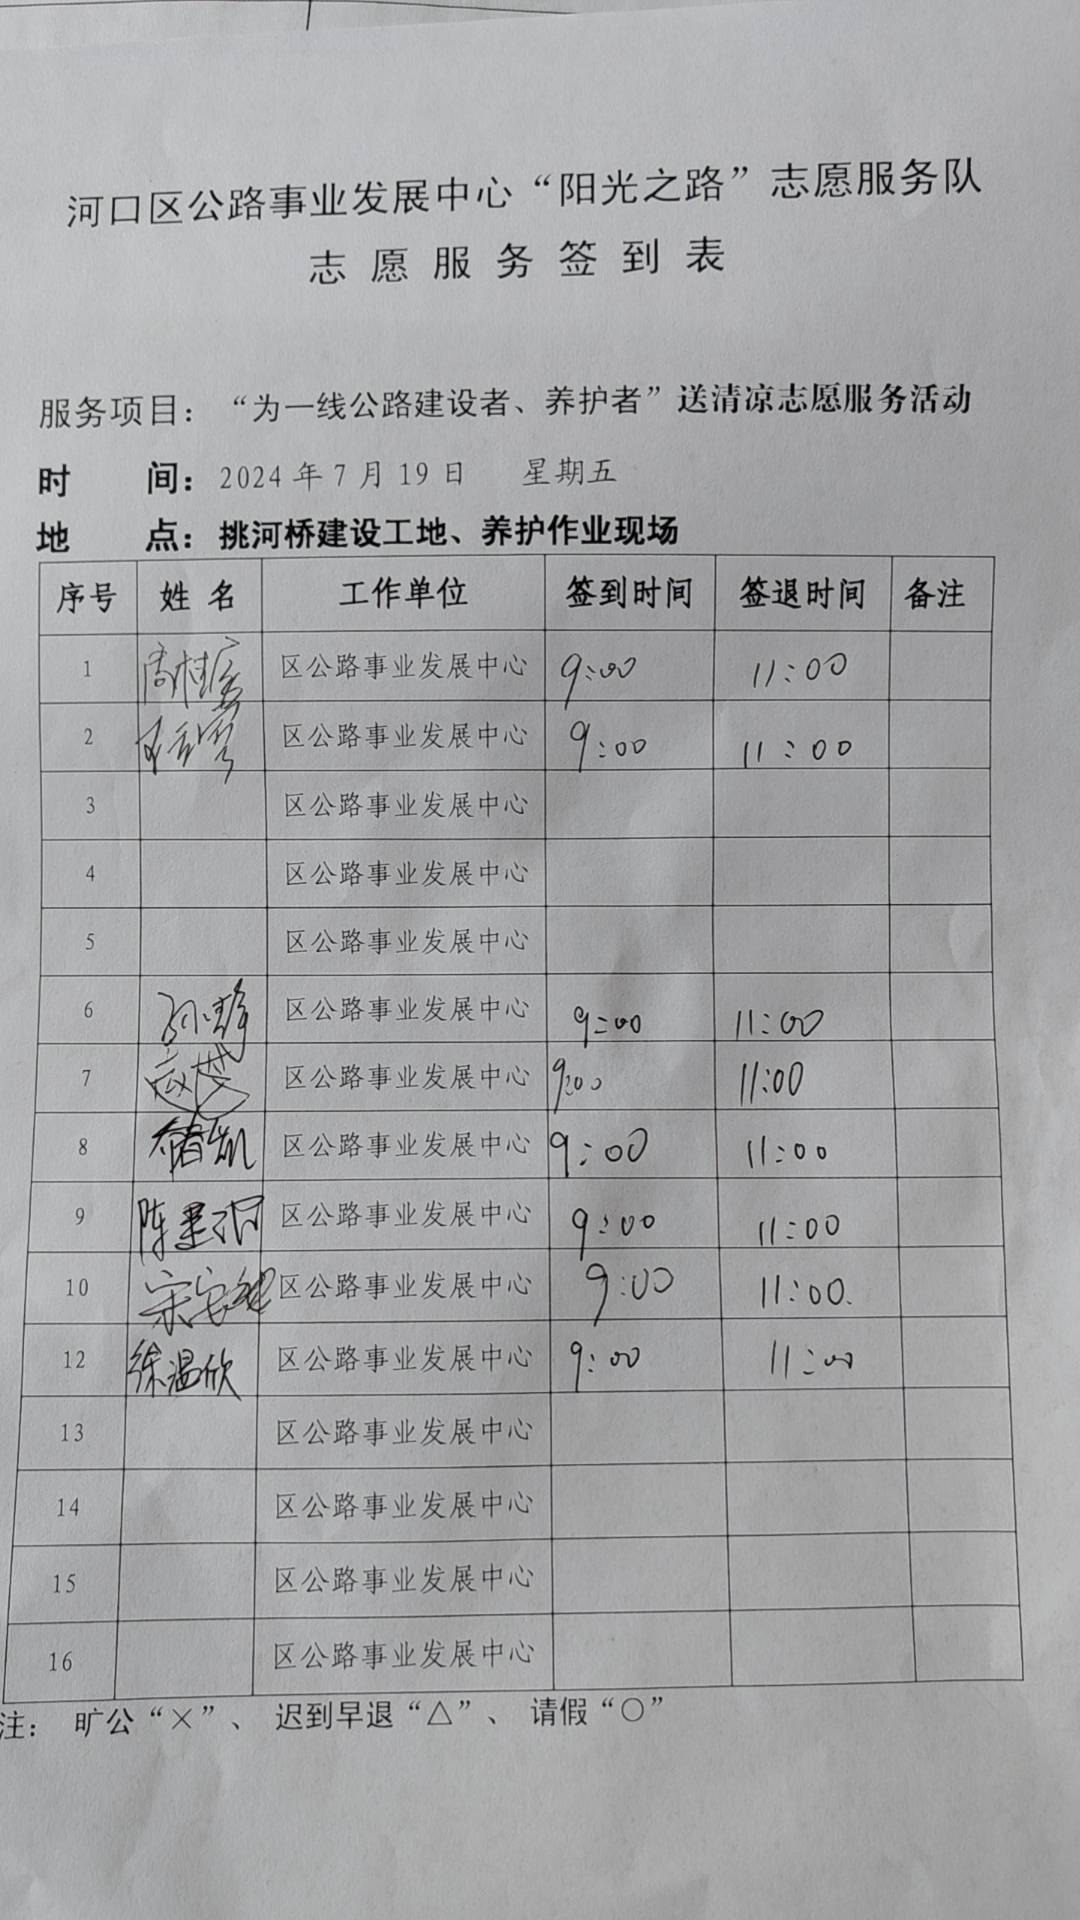 河口区公路事业发展中心“阳光之路”志愿服务队
志愿服务签到表
服务项目：“为一线公路建设者、养护者”送清凉志愿服务活动
时 间：2024年7月19日 星期五
地 点：挑河桥建设工地、养护作业现场
序号 姓名 工作单位 签到时间 签退时间 备注
1 区公路事业发展中心 9:00 11:00
2 区公路事业发展中心 9:00 11:00
3 区公路事业发展中心
4 区公路事业发展中心
5 区公路事业发展中心
6 孙静 区公路事业发展中心 9:00 11:00
7 区公路事业发展中心 9:00 11:00
8 区公路事业发展中心 9:00 11:00
9 区公路事业发展中心 9:00 11:00
10 区公路事业发展中心 9:00 11:00.
12 徐温欣 区公路事业发展中心 9:00 11:00
13 区公路事业发展中心
14 区公路事业发展中心
15 区公路事业发展中心
16 区公路事业发展中心
注： 旷公“×”、 迟到早退“△”、 请假“○”